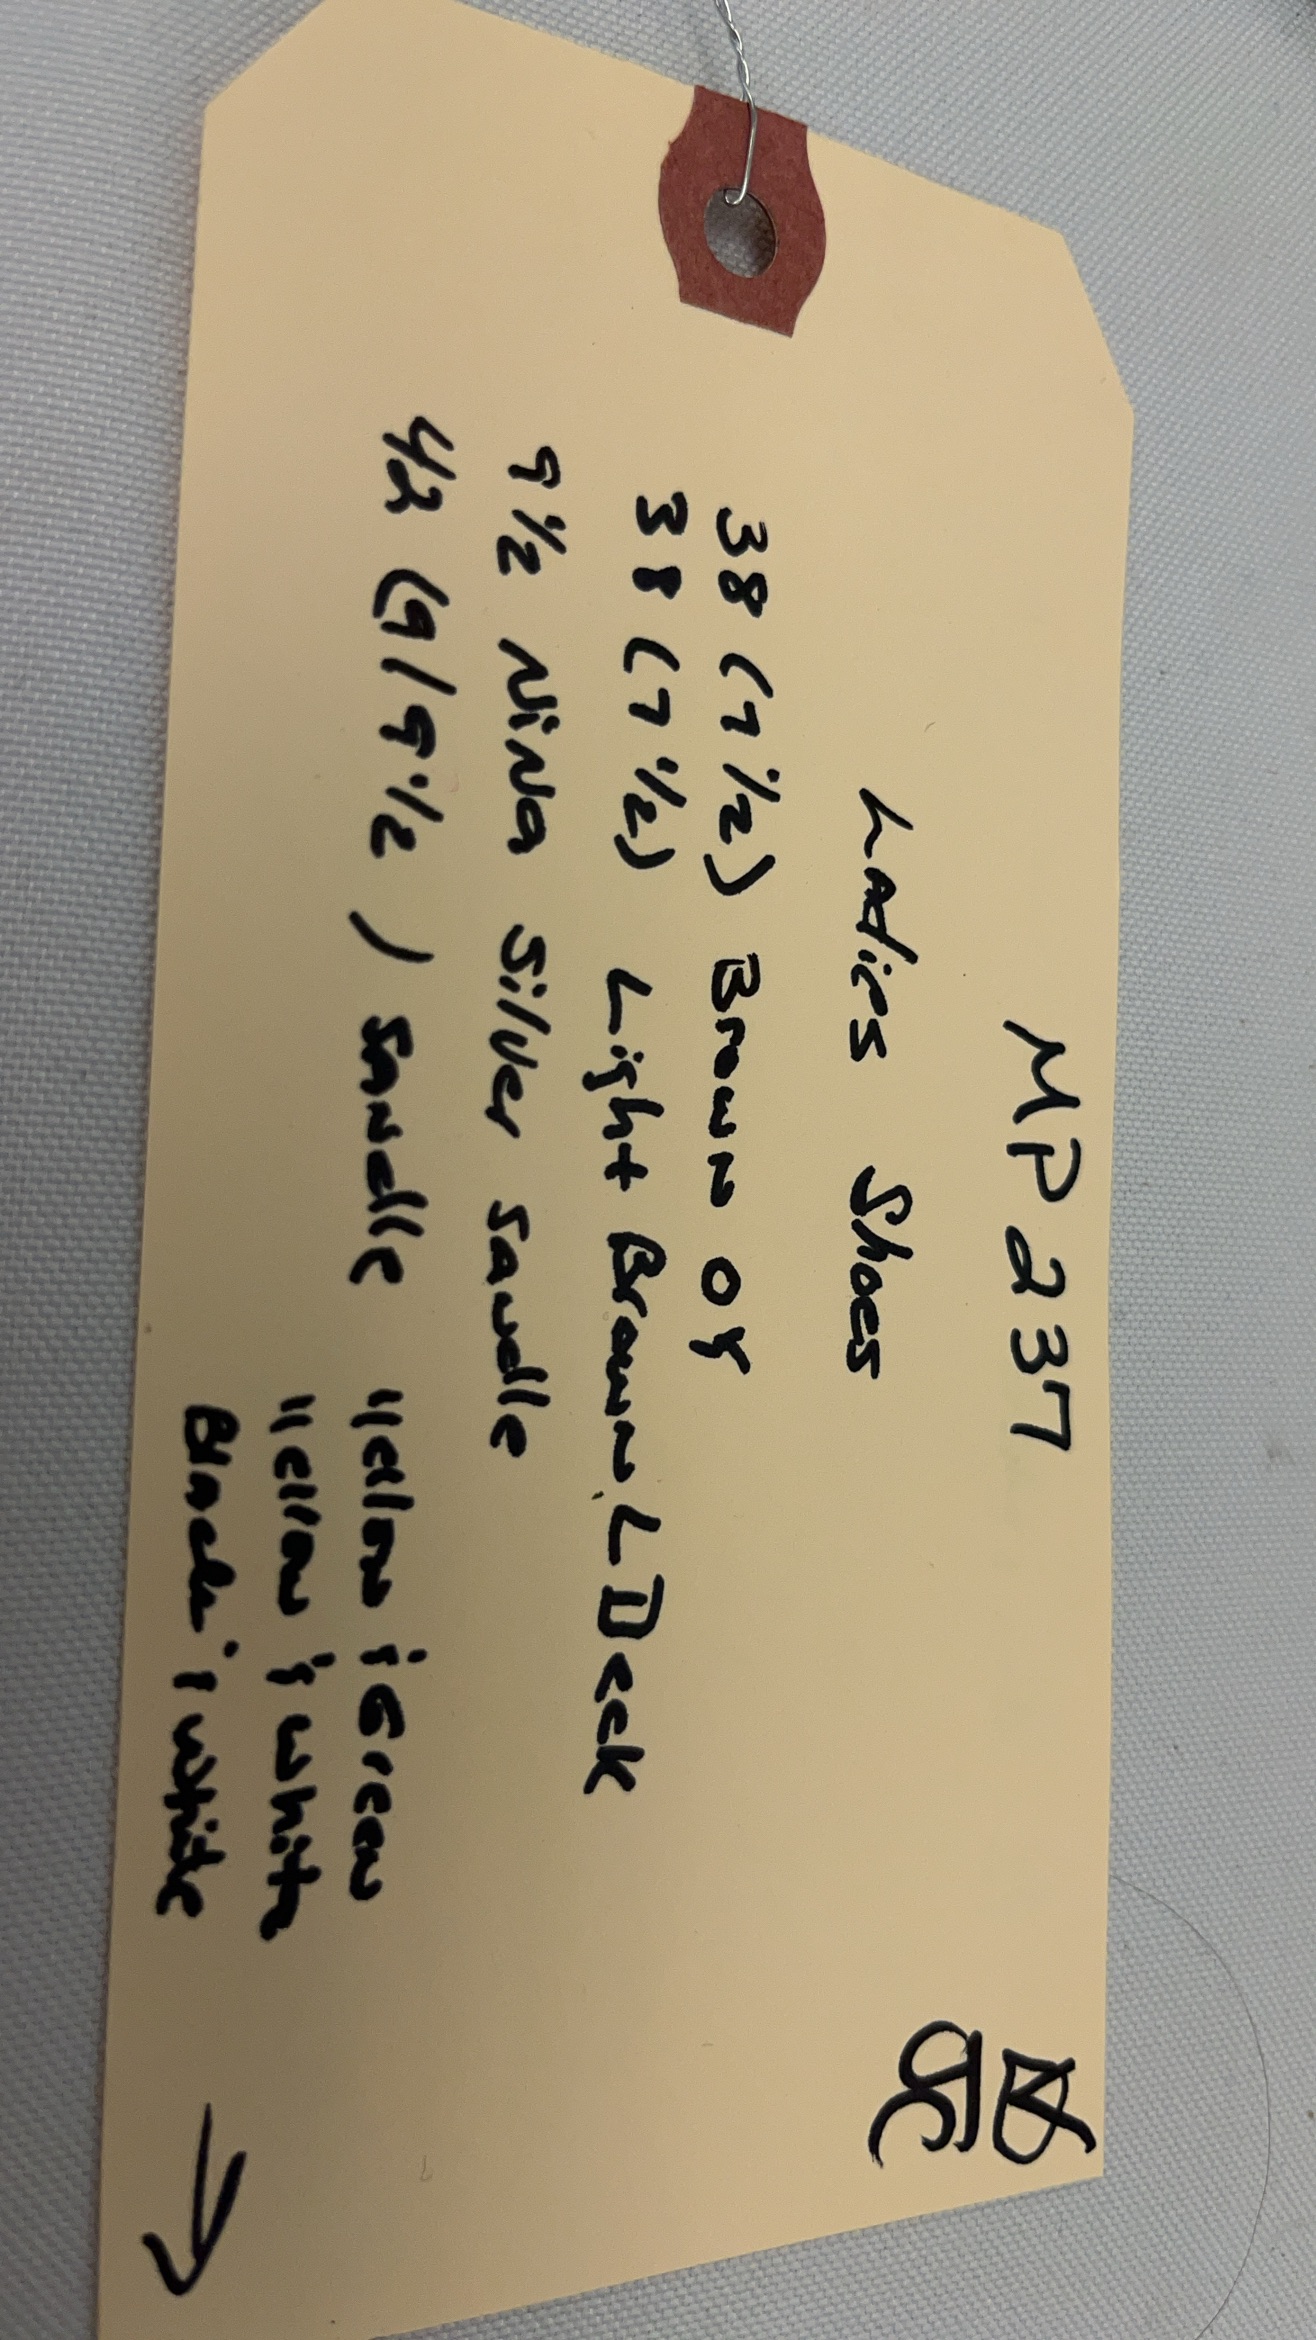 MP237
Ladies Shoes
38 (7 1/2) Brown
38 (7 1/2) Light Brown L Deck
9 1/2 Nina Silver Sandle
42 (9/9 1/2) Sandle Yellow & Green
Yellow & White
Black & White